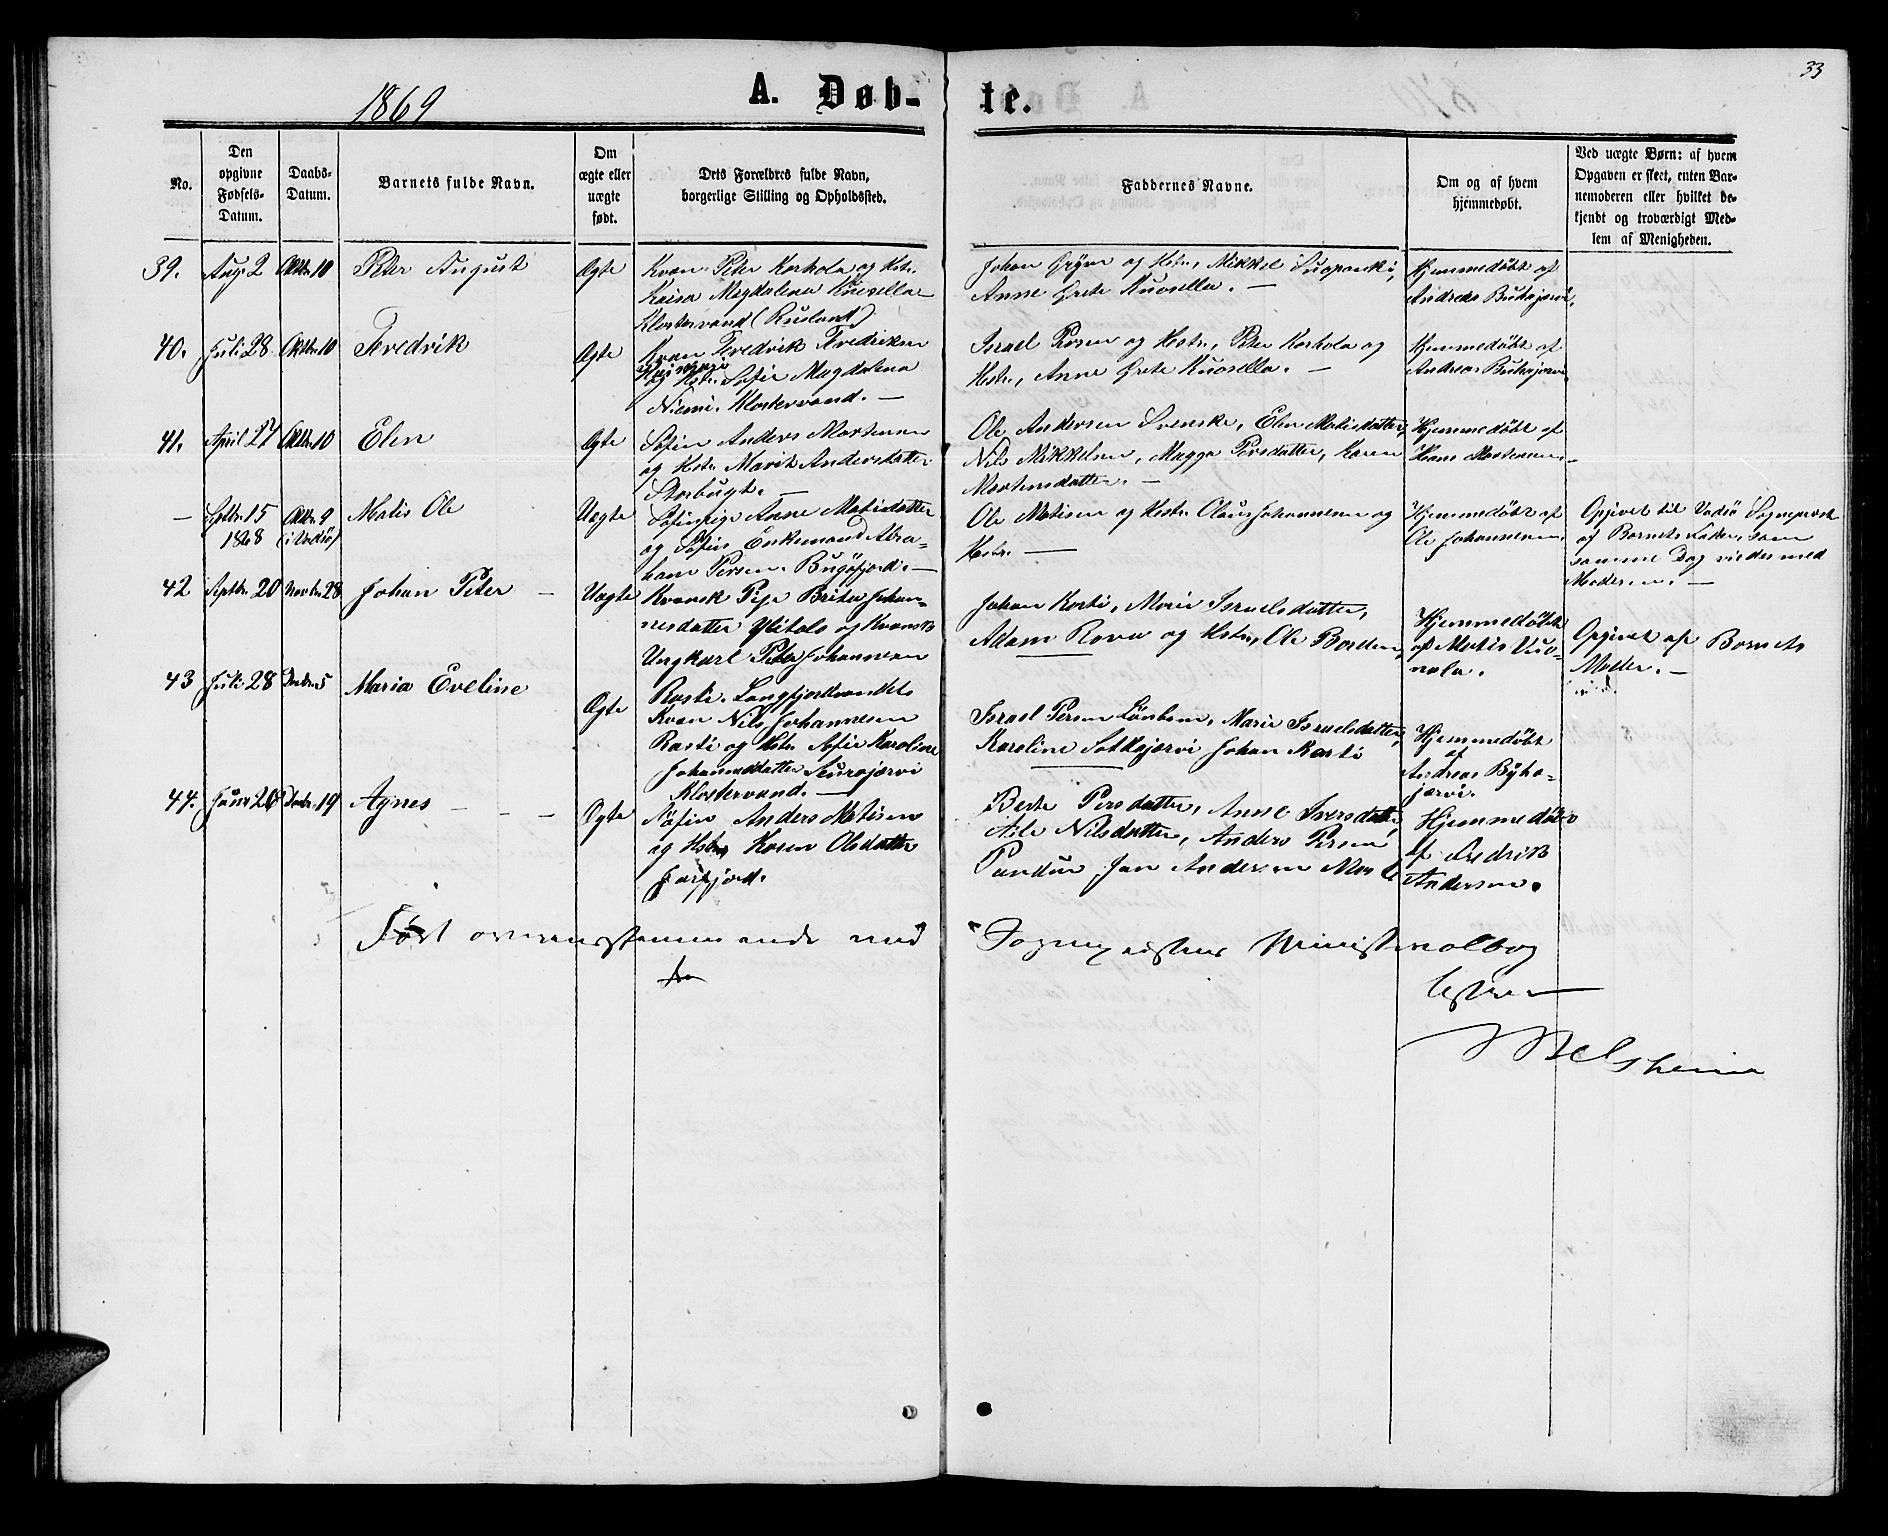 33
1869
A. Døb-te.
No.
Den opgivne Fødsels-Datum.
Daabs-Datum.
Barnets fulde Navn.
Om ægte eller uægte født.
Dets Forældres fulde Navn, borgerlige Stilling og Opholdssted.
Faddernes Navne.
Om og af hvem hjemmedøbt.
Ved uægte Børn: af hvem
Opgaven er skeet, enten Bar-
nemoderen eller hvilket be-
kjendt og troværdigt Med-
lem af Menigheden.
39. Aug. 2 Oktbr. 10 Peter August Ægte
Kvæn Peter Korhola og Hstr.
Kaisa Magdalena Kuosella
Klostervand (Rusland)
Johan Gryve og Hstr., Mikkel Suopanki,
Anne Grete Kuosella. —
Hjemmedøbt af
Andreas Buhajærvi.
40. Juli 28 Oktbr. 10 Fredrik Ægte
Kvæn Fredrik Fredriksen
og Hstr. Sofie Magdalena
Niemi. Klostervand. —
Israel Persen og Hstr., Peter Korhola og
Hstr., Anne Grete Kuosella. —
Hjemmedøbt af
Andreas Buhajærvi
41. April 27 Oktbr. 10 Elen Ægte
Søfin Anders Mortensen
og Hstr. Marit Andersdatter
Storbugt. —
Ole Andersen Svenske, Elen Matisdatter,
Nils Mikkelsen, Magga Persdatter, Karen
Mortensdatter. —
Hjemmedøbt af
Hans Mortensen.
— Septbr. 15 1868 Oktbr. 9 (i Vadsø) Matis Ole Uægte
Søfinpige Anne Matisdatter
og Søfin Enkemand Abra-
ham Persen. Bugøfjord. —
Ole Matisen og Hstr. Olaus Johannesen og
Hstr. —
Hjemmedøbt af
Ole Johannesen
Opgivet til Vadsø Sognepræst
af Barnets Fader, som
samme Dag viedes med
Moderen. —
42 Septbr. 20 Novbr. 28 Johan Peter — Uægte
Kvænsk Pige Brita Johan-
nesdatter Ylitalo og Kvænsk
Ungkarl Peter Johannesen
Rasti. Langfjordvandet
Johan Korti, Marie Israelsdatter,
Adam Rova og Hstr., Ole Borden,
Hjemmedøbt
af Matis Vuo-
nala.
Opgivet af Barnets
Moder. —
43 Juli 28 Decbr. 5 Maria Eveline Ægte
Kvæn Nils Johannesen
Rasti og Hstr. Sofie Karoline
Johannesdatter Seurujærvi
Klostervand. —
Israel Persen Lønbom, Marie Israelsdatter,
Karoline Sotkajærvi Johan Rasti
Hjemmedøbt
af
Andreas Byha-
jærvi.
44. Decbr. 19 Agnes — — — Ægte
Søfin Anders Matisen
og Hstr. Karen Olsdatter
Jarfjord.
Berte Persdatter, Anne Iversdatter,
Aile Nilsdatter, Anders Persen
Jan Andersen
Hjemmedøbt
af Fredrik
Andersen.
Ført overensstemmende med Sognepræstens Ministerialbog